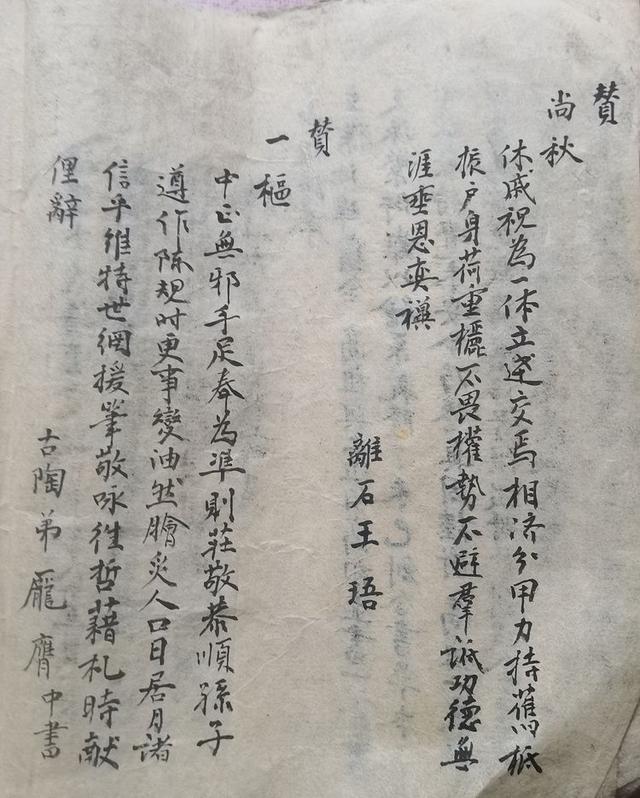 贊
尚秋
休戚視為一体立達交焉相济分甲力持舊
振户身荷重櫳不畏權勢不避羣詆功德無
涯垂恩奕禩
離石王珸
贊
一樞
中正無邪手足奉為準則莊敬恭順孫子
遵作陈規时更事變油然膾炙人口日居月诸
信乎維特世網援筆敬咏徃哲藉札時献
俚辭
古陶弟龐膺中書